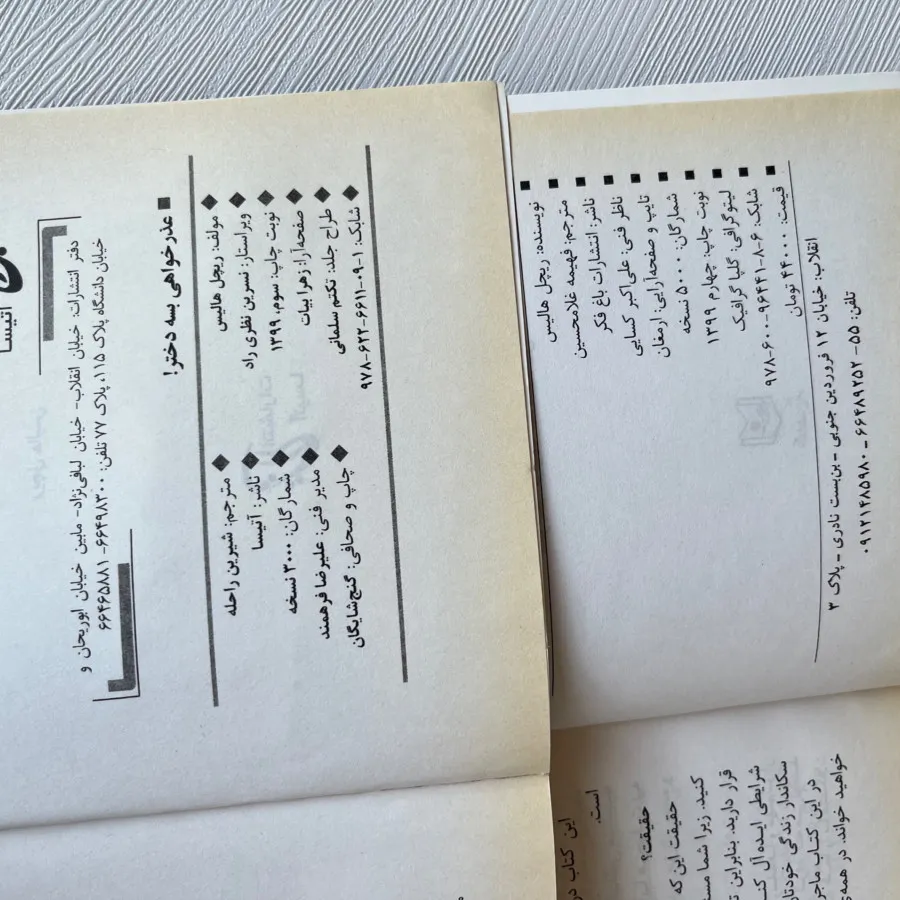 آتیسا
دفتر انتشارات: خیابان انقلاب- خیابان لبافی‌نژاد- مابین خیابان ابوریحان و
خیابان دانشگاه پلاک ۱۱۵، پلاک ۷۷ تلفن: ۶۶۴۹۸۳۰۰- ۶۶۴۶۵۸۸۱
عذرخواهی بسه دختر!
مولف: ریچل هالیس
مترجم: شیرین راحله
ویراستار: نسرین نظری راد
ناشر: آتیسا
نوبت چاپ: سوم، ۱۳۹۹
شمارگان: ۳۰۰۰ نسخه
صفحه‌آرا: زهرا بیات
مدیر فنی: علیرضا فرهمند
طراح جلد: تکتم سلمانی
چاپ و صحافی: گنج‌شایگان
شابک: ۱-۰۹-۶۶۱۱-۶۲۲-۹۷۸
نویسنده: ریچل هالیس
مترجم: فهیمه غلامحسین
ناشر: انتشارات باغ فکر
ناظر فنی: علی‌اکبر کسایی
تایپ و صفحه‌آرایی: ارمغان
شمارگان: ۵۰۰۰ نسخه
نوبت چاپ: چهارم ۱۳۹۹
لیتوگرافی: گلپا گرافیک
شابک: ۶-۸-۹۶۴۴۱-۶۰۰-۹۷۸
قیمت: ۴۴۰۰۰ تومان
انقلاب: خیابان ۱۲ فروردین جنوبی - بن‌بست نادری - پلاک ۳
تلفن: ۵۵- ۶۶۴۸۹۲۵۲ - ۰۹۱۲۱۴۸۵۹۸۰
این کتاب در
است.
حقیقت؟
حقیقت این که
کنید. زیرا شما
قرار دارید. بنابراین
شرایطی ایده‌آل
سکاندار زندگی
در این کتاب
خواهید خواند. در